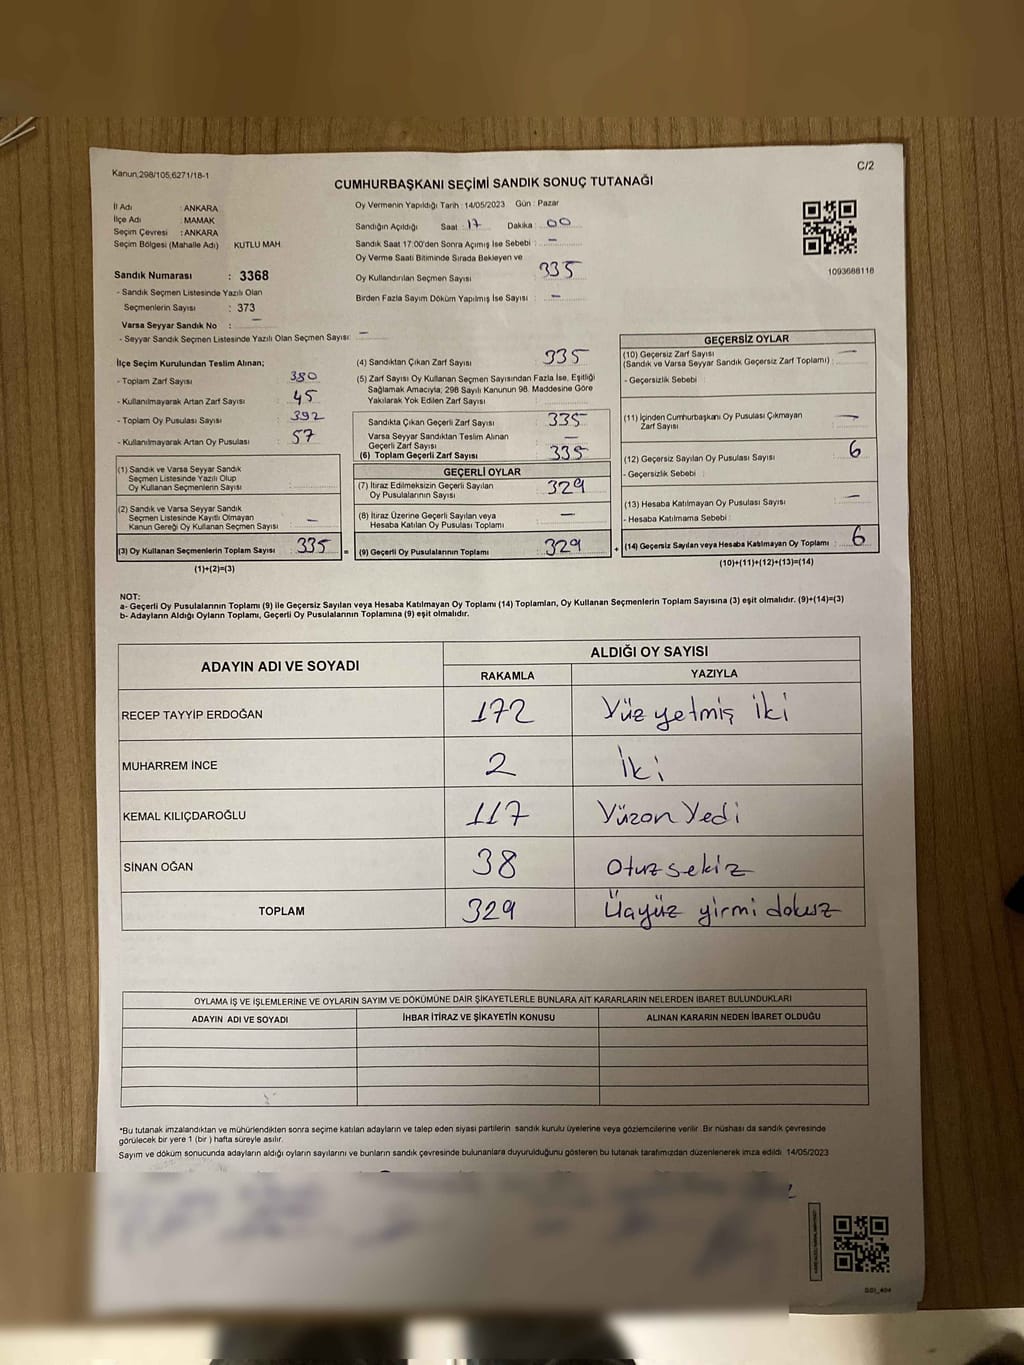 Kanun,298/105,6271/18-1
C/2
CUMHURBAŞKANI SEÇİMİ SANDIK SONUÇ TUTANAĞI
İl Adı : ANKARA
İlçe Adı : MAMAK
Seçim Çevresi : ANKARA
Seçim Bölgesi (Mahalle Adı) KUTLU MAH
Sandık Numarası : 3368
- Sandık Seçmen Listesinde Yazılı Olan
Seçmenlerin Sayısı : 373
Varsa Seyyar Sandık No : —
- Seyyar Sandık Seçmen Listesinde Yazılı Olan Seçmen Sayısı: —
Oy Vermenin Yapıldığı Tarih : 14/05/2023 Gün : Pazar
Sandığın Açıldığı Saat : 17 Dakika : 00
Sandık Saat 17:00'den Sonra Açımış İse Sebebi : —
Oy Verme Saati Bitiminde Sırada Bekleyen ve
Oy Kullandırılan Seçmen Sayısı : 335
Birden Fazla Sayım Döküm Yapılmış İse Sayısı : —
1093688118
İlçe Seçim Kurulundan Teslim Alınan;
- Toplam Zarf Sayısı : 380
- Kullanılmayarak Artan Zarf Sayısı : 45
- Toplam Oy Pusulası Sayısı : 392
- Kullanılmayarak Artan Oy Pusulası : 57
(1) Sandık ve Varsa Seyyar Sandık
Seçmen Listesinde Yazılı Olup
Oy Kullanan Seçmenlerin Sayısı :
(2) Sandık ve Varsa Seyyar Sandık
Seçmen Listesinde Kayıtlı Olmayan
Kanun Gereği Oy Kullanan Seçmen Sayısı : —
(3) Oy Kullanan Seçmenlerin Toplam Sayısı : 335
(1)+(2)=(3)
=
(4) Sandıktan Çıkan Zarf Sayısı : 335
(5) Zarf Sayısı Oy Kullanan Seçmen Sayısından Fazla İse, Eşitliği
Sağlamak Amacıyla; 298 Sayılı Kanunun 98. Maddesine Göre
Yakılarak Yok Edilen Zarf Sayısı :
Sandıkta Çıkan Geçerli Zarf Sayısı : 335
Varsa Seyyar Sandıktan Teslim Alınan
Geçerli Zarf Sayısı : —
(6) Toplam Geçerli Zarf Sayısı : 335
GEÇERLİ OYLAR
(7) İtiraz Edilmeksizin Geçerli Sayılan
Oy Pusulalarının Sayısı : 329
(8) İtiraz Üzerine Geçerli Sayılan veya
Hesaba Katılan Oy Pusulası Toplamı : —
(9) Geçerli Oy Pusulalarının Toplamı : 329
+
GEÇERSİZ OYLAR
(10) Geçersiz Zarf Sayısı
(Sandık ve Varsa Seyyar Sandık Geçersiz Zarf Toplamı) : —
- Geçersizlik Sebebi :
(11) İçinden Cumhurbaşkanı Oy Pusulası Çıkmayan
Zarf Sayısı : —
(12) Geçersiz Sayılan Oy Pusulası Sayısı : 6
- Geçersizlik Sebebi :
(13) Hesaba Katılmayan Oy Pusulası Sayısı : —
- Hesaba Katılmama Sebebi :
(14) Geçersiz Sayılan veya Hesaba Katılmayan Oy Toplamı : 6
(10)+(11)+(12)+(13)=(14)
NOT:
a- Geçerli Oy Pusulalarının Toplamı (9) ile Geçersiz Sayılan veya Hesaba Katılmayan Oy Toplamı (14) Toplamları, Oy Kullanan Seçmenlerin Toplam Sayısına (3) eşit olmalıdır. (9)+(14)=(3)
b- Adayların Aldığı Oyların Toplamı, Geçerli Oy Pusulalarının Toplamına (9) eşit olmalıdır.
ADAYIN ADI VE SOYADI ALDIĞI OY SAYISI
RAKAMLA YAZIYLA
RECEP TAYYİP ERDOĞAN 172 Yüz yetmiş iki
MUHARREM İNCE 2 İki
KEMAL KILIÇDAROĞLU 117 Yüzon Yedi
SİNAN OĞAN 38 Otuz sekiz
TOPLAM 329 Üçyüz yirmi dokuz
OYLAMA İŞ VE İŞLEMLERİNE VE OYLARIN SAYIM VE DÖKÜMÜNE DAİR ŞİKAYETLERLE BUNLARA AİT KARARLARIN NELERDEN İBARET BULUNDUKLARI
ADAYIN ADI VE SOYADI İHBAR İTİRAZ VE ŞİKAYETİN KONUSU ALINAN KARARIN NEDEN İBARET OLDUĞU
*Bu tutanak imzalandıktan ve mühürlendikten sonra seçime katılan adayların ve talep eden siyasi partilerin sandık kurulu üyelerine veya gözlemcilerine verilir. Bir nüshası da sandık çevresinde
görülecek bir yere 1 (bir ) hafta süreyle asılır.
Sayım ve döküm sonucunda adayların aldığı oyların sayılarını ve bunların sandık çevresinde bulunanlara duyurulduğunu gösteren bu tutanak tarafımızdan düzenlenerek imza edildi. 14/05/2023